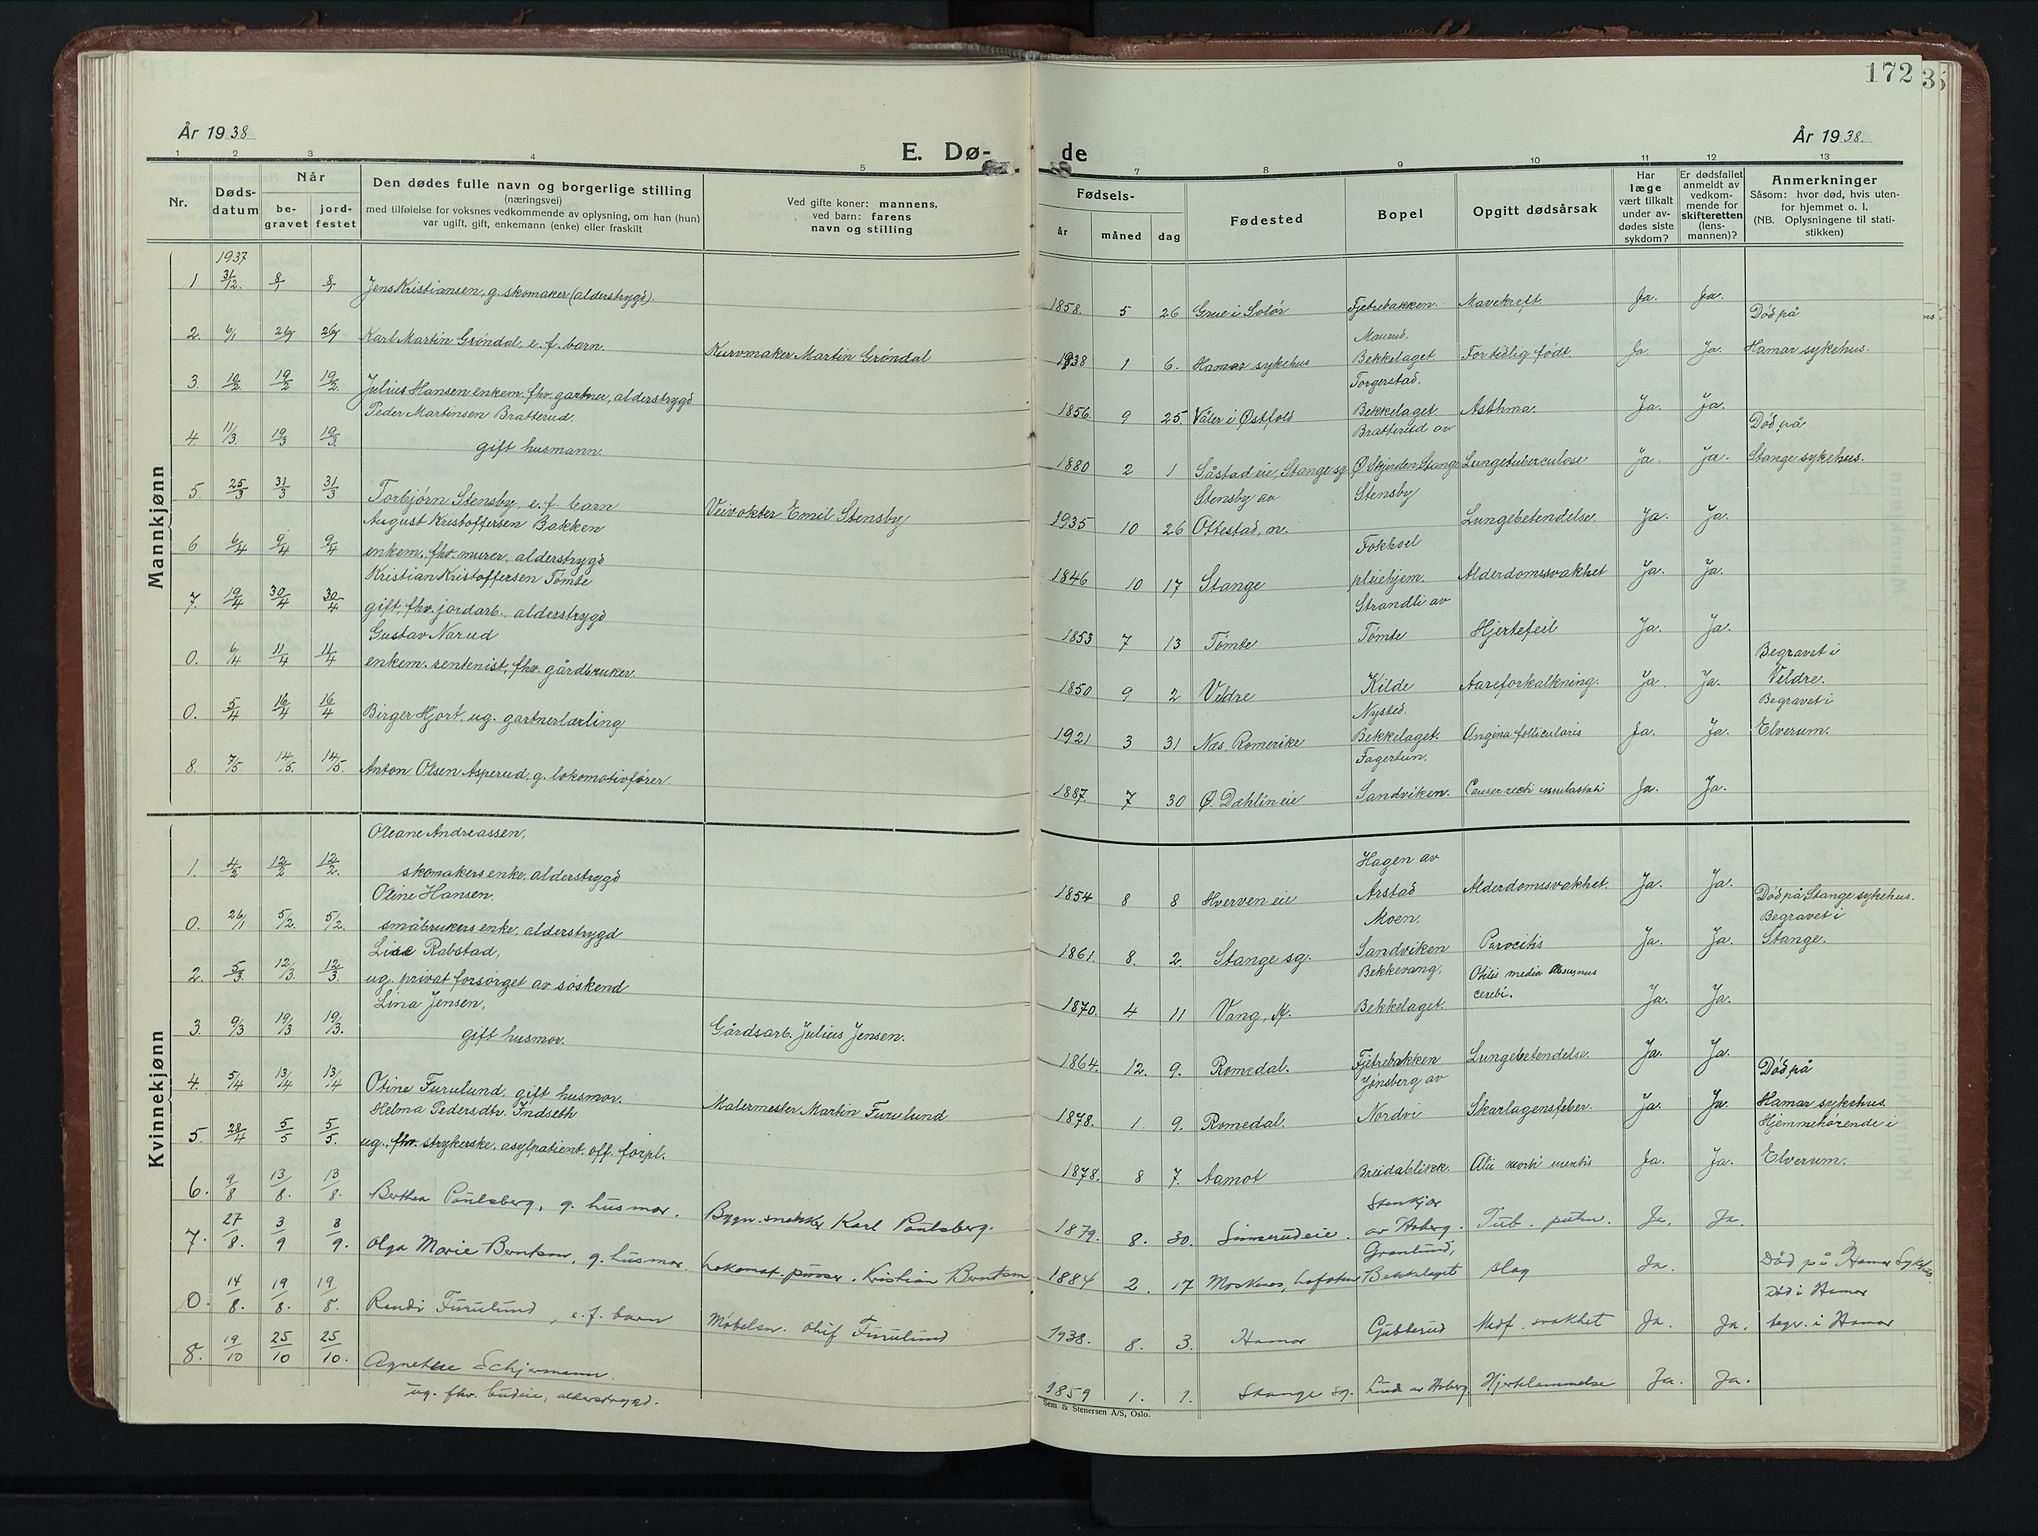 172
35
År 1938
År 1938.
E. Dø-
de
1 2 3 4 5
7 8 9 10 11 12 13
Nr.
Døds-
datum
Når
be-
gravet
jord-
festet
Den dødes fulle navn og borgerlige stilling
(næringsvei)
med tilføielse for voksnes vedkommende av oplysning, om han (hun)
var ugift, gift, enkemann (enke) eller fraskilt
Ved gifte koner: mannens,
ved barn: farens
navn og stilling
Fødsels-
år måned dag
Fødested
Bopel
Opgitt dødsårsak
Har
læge
vært tilkalt
under av-
dødes siste
sykdom?
Er dødsfallet
anmeldt av
vedkom-
mende for
skifteretten
(lens-
mannen)?
Anmerkninger
Såsom: hvor død, hvis uten-
for hjemmet o. l.
(NB. Oplysningene til stati-
stikken)
Mannkjønn
1937
1 31/12 8/1 8/1 Jens Kristiansen, g. skomaker (alderstrygd). 1858. 5 26 Grue i Solør Fjetrebakken. Mavekreft. Ja. Ja.
2. 6/1 26/1 26/1 Karl Martin Grøndal, e. f. barn. Kurvmaker Martin Grøndal 1938 1 6. Hamar sykehus Maurud. Bekkelaget For tidlig født. Ja. Ja. Død på Hamar sykehus.
3. 12/2 19/2 19/2. Julius Hansen enkem. fhv. gartner, alderstrygd 1856. 9 25. Våler i Østfold Torgerstad, Bekkelaget. Asthma. Ja. Ja.
Peder Martinsen Bratterud.
4. 11/3. 19/3 19/3. gift husmann. 1880 2 1 Såstad eie, Stange sg. Bratterud av Ø. Skjerden Stange Lungetuberculose Ja. Ja. Død på Stange sykehus.
5. 25/3 31/3 31/3 Torbjørn Stensby, e. f. barn Veivokter Emil Stensby 1935 10 26 Stensby av Ottestad, n. Stensby Lungebetendelse. Ja. Ja.
August Kristoffersen Bakken
6 6/4 9/4 9/4 enkem. fhv. murer, alderstrygd 1846 10 17 Stange Fokhoel pleiehjem. Alderdomssvakhet Ja. Ja.
Kristian Kristoffersen Tømte
7. 19/4 30/4 30/4 gift, fhv. jordarb., alderstrygd 1853 7 13 Tømte Strandli av Tømte Hjertefeil Ja. Ja.
Gustav Narud
0. 6/4 11/4 11/4 enkem. rentenist, fhv. gårdbruker 1850 9 2 Veldre Kilde Aareforkalkning. Ja. Ja. Begravet i Veldre.
0. 5/4 16/4 16/4 Birger Hjort, ug. gartnerlærling 1921 3 31 Næs, Romerike Nysted. Bekkelaget. Angina follicularis Ja. Ja. Begravet i Elverum.
8. 7/5. 14/5. 14/5. Anton Olsen Asperud, g. lokomotivfører. 1887. 7 30 Ø. Dæhlin eie Fagertun, Sandviken. Cancer recti Ja. Ja.
Kvinnekjønn
Oleane Andreassen,
1. 4/2 12/2 12/2. skomakers enke, alderstrygd 1854 8 8 Hverven eie Hagen av Arstad Alderdomssvakhet. Ja. Ja.
Oline Hansen,
0. 26/1 5/2. 5/2. småbrukers enke, alderstrygd 1861. 8. 2. Stange sg. Moen. Sandviken Ja. Ja. Død på Stange sykehus. Begravet i Stange.
Lise Rabstad,
2. 5/3. 12/3. 12/3. ug. privat forsørget av søskend 1870. 4 11 Vang, H. Bekkevang, Bekkelaget Otitis media cerebi. Ja. Ja.
Lina Jensen,
3. 9/3 19/3 19/3. gift husmor. Gårdsarb. Julius Jensen. 1864. 12. 9. Romedal. Fjetrebakken Lungebetendelse. Ja. Ja.
4. 5/4 13/4 13/4 Otine Furulund, gift husmor. Malermester Martin Furulund 1878. 1. 9. Romedal. Jønsberg av Nordvi Skarlagensfeber. Ja. Ja. Død på Hamar sykehus.
Helma Pedersdtr. Indseth
5. 28/4 5/5 5/5. ug., fhv. strykerske, asylpatient. off. forpl. 1878. 8 7. Aamot Breidablikk. Ja. Ja. Hjemmehørende i Elverum.
6. 9/8 13/8. 13/8. Berthea Paulsberg, g. husmor. Bygn. snekker Karl Paulsberg. 1879. 8. 30. Simerudeie. av Arberg. Tub. pulm. Ja. Ja.
7. 27/8. 3/9 8/9. Olga Marie Berntsen, g. husmor. Lokomot. pusser. Kristian Berntsen 1884 2. 17 Moskenes, Lofoten Granlund, Bekkelaget slag Ja. Død på Hamar Sykehus
0. 14/8. 19/8. 19/8. Randi Furulund, e. f. barn Møbelsn. Olif Furulund 1938. 8. 3. Hamar Gubberud Medf. svakhet Ja. Ja. Død i Hamar begr. i Hamar
8. 19/10 25/10 25/10. Agnethe Schjermann. 1859 1. 1. Stange sg. Lund av Arberg Hjertelammelse Ja. Ja.
ug. fhv. budeie, alderstrygd.
Sem & Stenersen A/S, Oslo.